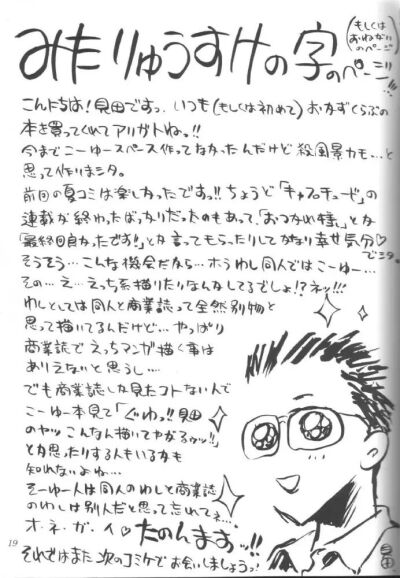 みたりゅうすけの字のページ!!!
(もしくはおわねがいのページ)
こんにちは!見田ですっ.いつも(もしくは初めて)おかずくらぶの
本を買ってくれてアリガトねっ!!
今までこーゆースペース作ってなかったんだけど殺風景カモ…と
思って作りまシタ。
前回の夏コミは楽しかったですっ!!ちょうど「キャプテュード」の
連載が終わったばっかりだったのもあって、「おつかれ様」とか
「最終回良かったです!」とか言ってもらったりしてかなり幸せ気分♡
でシタ。
そうそう…こんな機会だなら…ホラわし同人ではこーゆー…
その…え…えっち系描いたりなんかしてるでしょ!?ネッ!!!
わしとしては同人と商業誌って全然別物と
思って描いてるんだけど…やっぱり
商業誌でえっちマンガ描く事は
ありえないと思うし…
でも商業誌しか見たコトない人で
こーゆー本見て「ぐわっ!!見田
のヤツこんなん描いてやがるゥッ!!」
とか思ったりする人もいるかも
知れないよね…
そーゆー人は同人のわしと商業誌
のわしは別人だと思って忘れてネ…
オ・ネ・ガ・イ♡たのんますッ!!
それではまた次のコミケでお会いしましょうっ!
見田
19